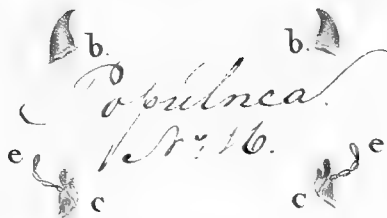 b. b.
Populnea.
Nº. 16.
e e
c c